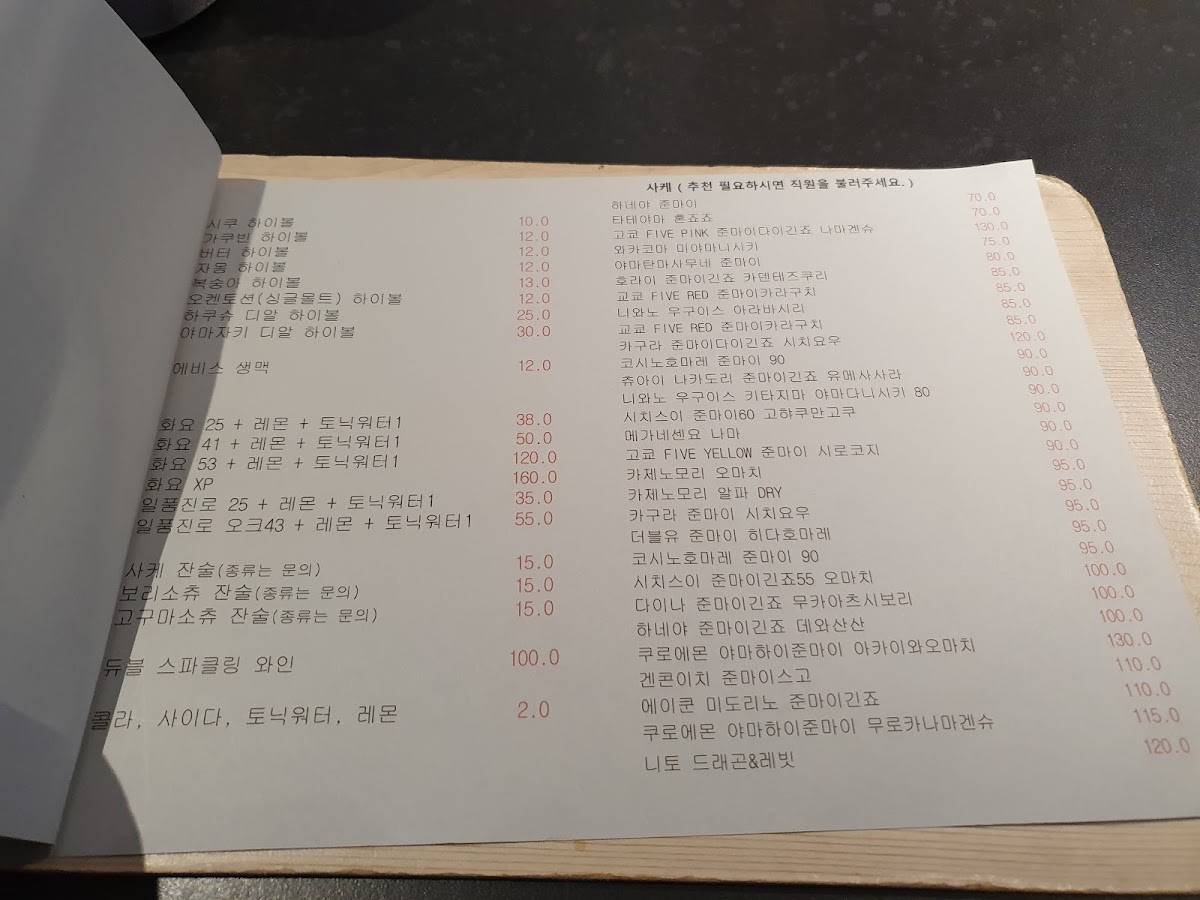 시쿠 하이볼 10.0
가쿠빈 하이볼 12.0
버터 하이볼 12.0
자몽 하이볼 12.0
복숭아 하이볼 13.0
오켄토션(싱글몰트) 하이볼 12.0
하쿠슈 디알 하이볼 25.0
야마자키 디알 하이볼 30.0
에비스 생맥 12.0
화요 25 + 레몬 + 토닉워터1 38.0
화요 41 + 레몬 + 토닉워터1 50.0
화요 53 + 레몬 + 토닉워터1 120.0
화요 XP 160.0
일품진로 25 + 레몬 + 토닉워터1 35.0
일품진로 오크43 + 레몬 + 토닉워터1 55.0
사케 잔술(종류는 문의) 15.0
보리소츄 잔술(종류는 문의) 15.0
고구마소츄 잔술(종류는 문의) 15.0
듀블 스파클링 와인 100.0
콜라, 사이다, 토닉워터, 레몬 2.0
사케 ( 추천 필요하시면 직원을 불러주세요. )
하네야 준마이 70.0
타테야마 혼죠죠 70.0
고쿄 FIVE PINK 준마이다이긴죠 나마겐슈 130.0
와카코마 미야마니시키 75.0
야마탄마사무네 준마이 80.0
호라이 준마이긴죠 카덴테즈쿠리 85.0
교쿄 FIVE RED 준마이카라구치 85.0
니와노 우구이스 아라바시리 85.0
교쿄 FIVE RED 준마이카라구치 85.0
카구라 준마이다이긴죠 시치요우 120.0
코시노호마레 준마이 90 90.0
츄아이 나카도리 준마이긴죠 유메사사라 90.0
니와노 우구이스 키타지마 야마다니시키 80 90.0
시치스이 준마이60 고햐쿠만고쿠 90.0
메가네센요 나마 90.0
고쿄 FIVE YELLOW 준마이 시로코지 90.0
카제노모리 오마치 95.0
카제노모리 알파 DRY 95.0
카구라 준마이 시치요우 95.0
더블유 준마이 히다호마레 95.0
코시노호마레 준마이 90 95.0
시치스이 준마이긴죠55 오마치 100.0
다이나 준마이긴죠 무카아츠시보리 100.0
하네야 준마이긴죠 데와산산 100.0
쿠로에몬 야마하이준마이 아카이와오마치 130.0
겐콘이치 준마이스고 110.0
에이쿤 미도리노 준마이긴죠 110.0
쿠로에몬 야마하이준마이 무로카나마겐슈 115.0
니토 드래곤&래빗 120.0